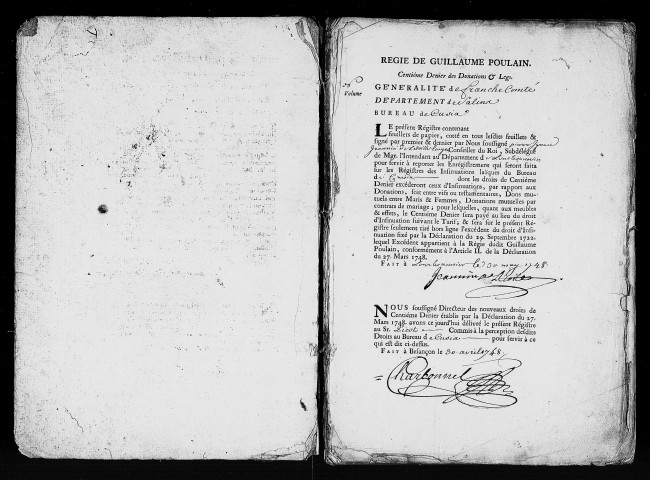 REGIE DE GUILLAUME POULAIN.
Centiéme Denier des Donations & Legs.
Volume
GÉNERALITÉ de franche Comté
DEPARTEMENT de Salins
BUREAU de Cusia
LE présent Régistre contenant
feuillets de papier, cotté en tous lesdits feuillets &
signé par premier & dernier par Nous soussigné
Conseiller du Roi, Subdélégué
de Mgr. l'Intendant au Département de
pour servir à reporter les Enrégistremens qui seront faits
sur les Régistres des Insinuations laïques du Bureau
de Cusia dont les droits de Centiéme
Denier excéderont ceux d'Insinuation, par rapport aux
Donations, soit entre vifs ou testamentaires, Dons mu-
tuels entre Maris & Femmes, Donations mutuelles par
contrats de mariage; pour lesquelles, quant aux meubles
& effets, le Centiéme Denier sera payé au lieu du droit
d'Insinuation suivant le Tarif; & sera sur le présent Ré-
gistre seulement tiré hors ligne l'excédent du droit d'Insi-
nuation fixé par la Déclaration du 29. Septembre 1722.
lequel Excédent appartient à la Régie dudit Guillaume
Poulain, conformément à l'Article II. de la Déclaration
du 27. Mars 1748.
FAIT à le 30 may 1748.
NOUS soussigné Directeur des nouveaux droits de
Centiéme Denier établis par la Déclaration du 27.
Mars 1748. avons ce jourd'hui délivré le présent Régistre
au Sr. Commis à la perception desdits
Droits au Bureau de Cusia pour servir à ce
qui est dit ci-dessus.
FAIT à Besançon le 30 avril 1748.
Charbonnel